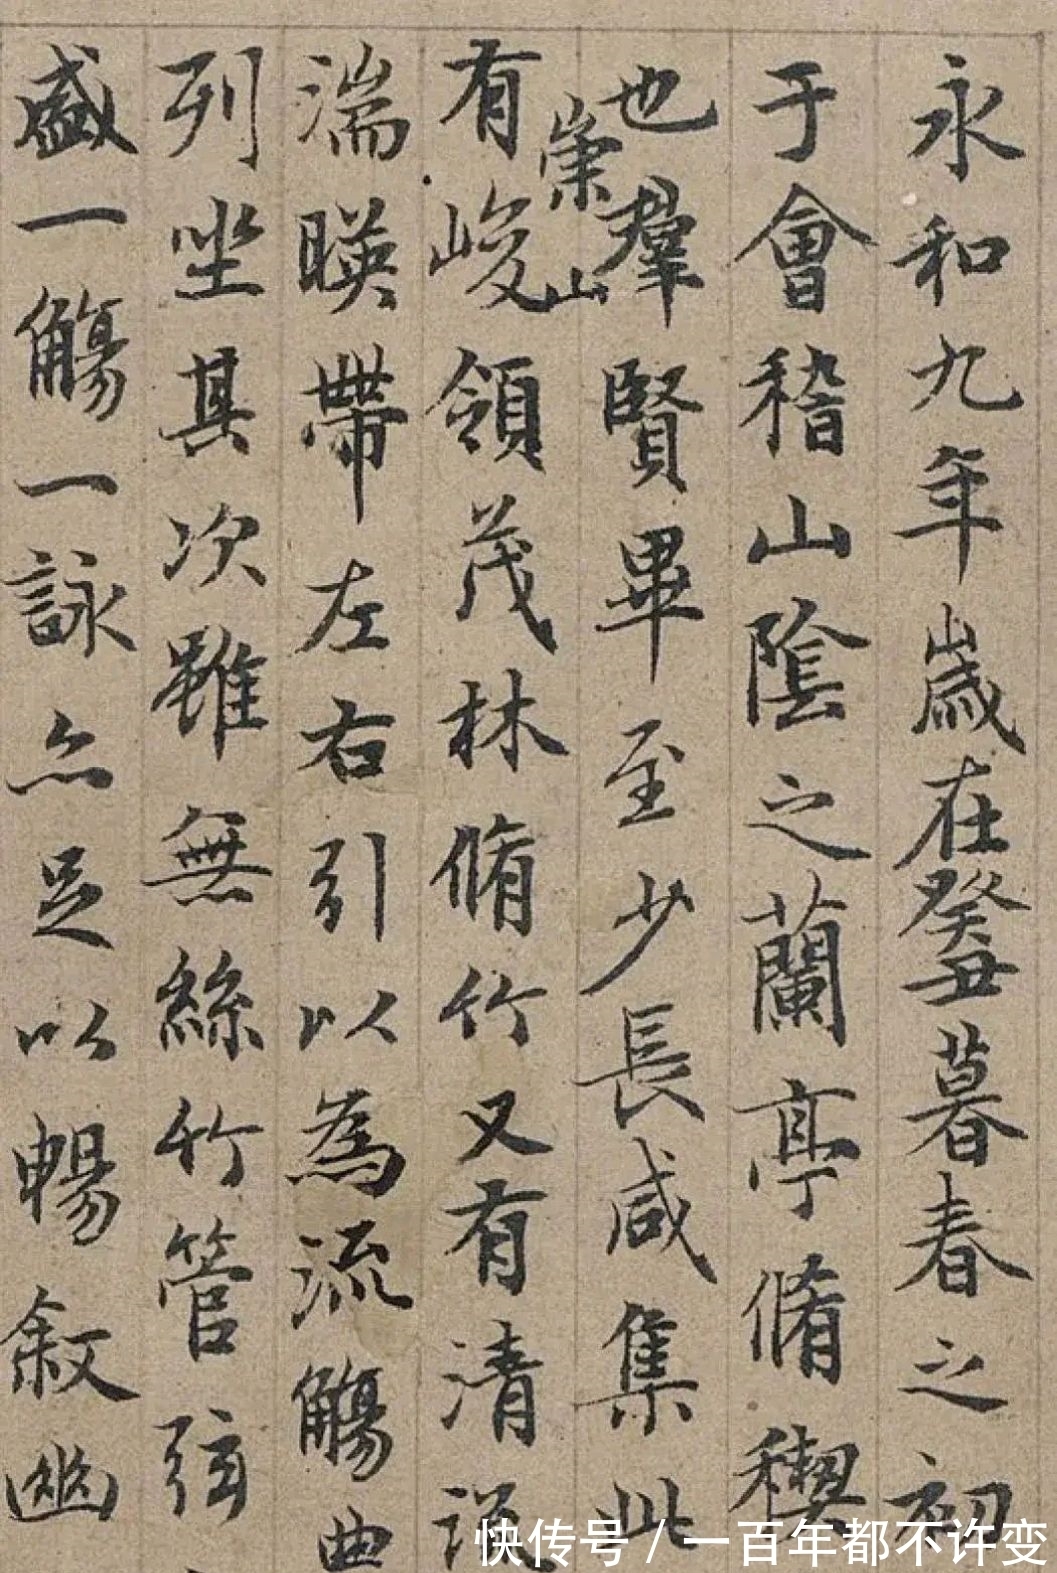 永和九年歲在癸丑暮春之初
于會稽山陰之蘭亭脩稧
也羣賢畢至少長咸集此
崇山
有峻領茂林脩竹又有清
湍暎帶左右引以為流觴曲
列坐其次雖無絲竹管弦
盛一觴一詠亦足以暢敘幽
快传号 / 一百年都不许变